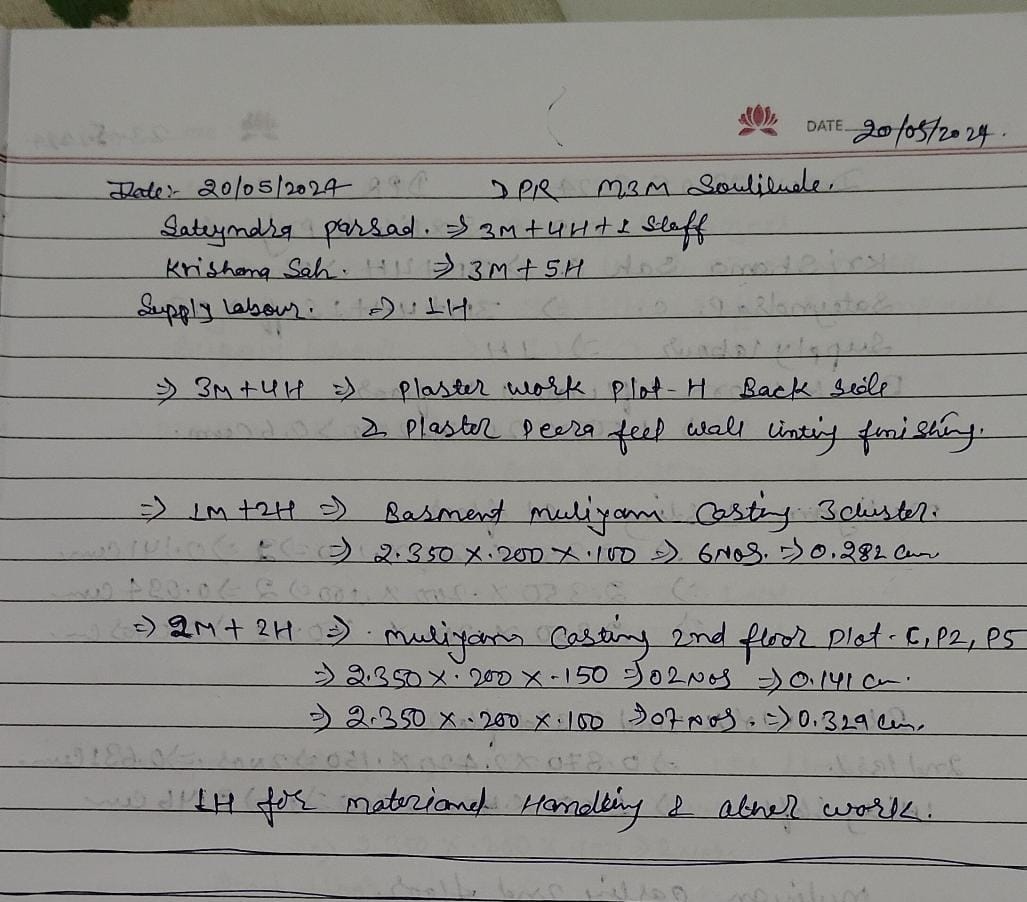 DATE 20/05/2024.
Date:- 20/05/2024 DPR M3M Soulilude.
Sateyndra parsad. => 3M + 4H + 1 Staff
Krishana Sah. => 3M + 5H
Supply Labour. => 1H.
=> 3M + 4H => Plaster work Plot - H Back Side
2 Plaster peera feel wall linting finishing.
=> 1M + 2H => Basment muliyam Casting 3 cluster.
=> 2.350 x .200 x .100 => 6 Nos. => 0.282 cum
=> 2M + 2H => muliyam Casting 2nd floor Plot - C, P2, P5
=> 2.350 x .200 x .150 => 02 Nos => 0.141 cm.
=> 2.350 x .200 x .100 => 07 Nos. => 0.329 cum.
1H for materiand Handling & abher work.